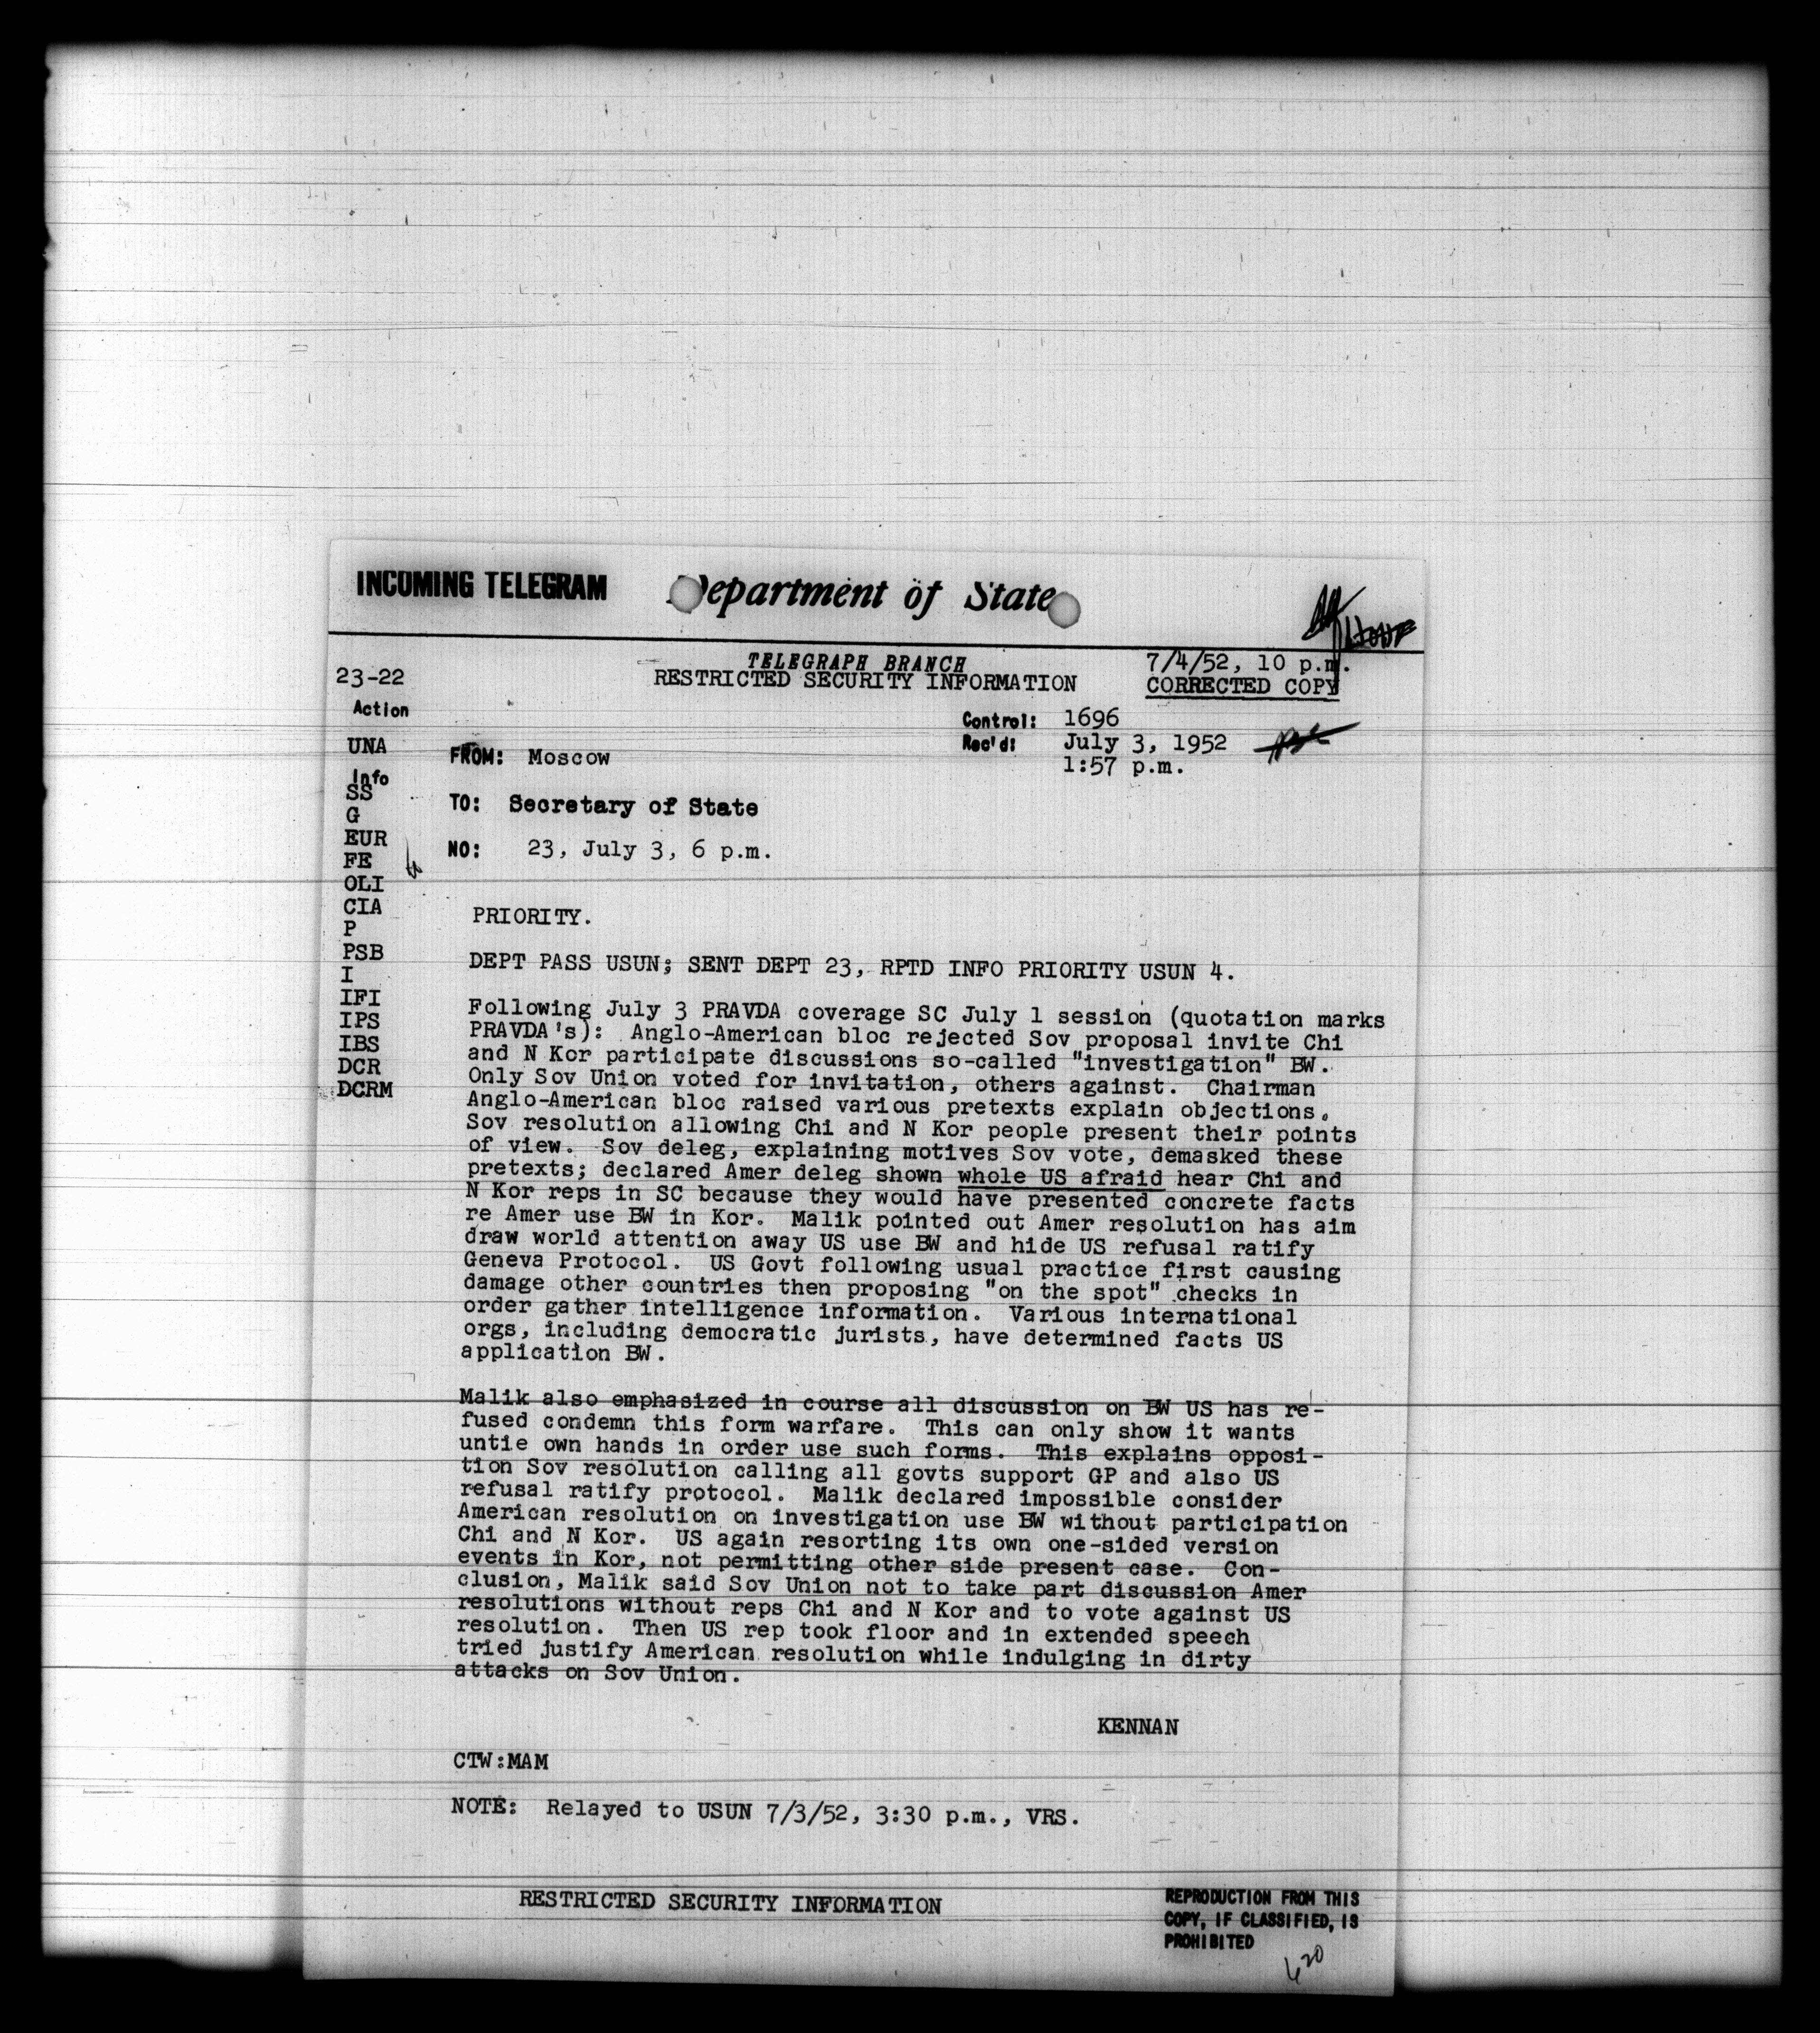 INCOMING TELEGRAM Department of State
TELEGRAPH BRANCH 7/4/52, 10 p.m.
23-22 RESTRICTED SECURITY INFORMATION CORRECTED COPY
Action
Control: 1696
UNA Rec'd: July 3, 1952
FROM: Moscow 1:57 p.m.
Info
SS
TO: Secretary of State
G
EUR
NO: 23, July 3, 6 p.m.
FE
OLI
CIA
PRIORITY.
P
PSB
DEPT PASS USUN; SENT DEPT 23, RPTD INFO PRIORITY USUN 4.
I
IFI
IPS
IBS
DCR
DCRM
Following July 3 PRAVDA coverage SC July 1 session (quotation marks
PRAVDA's): Anglo-American bloc rejected Sov proposal invite Chi
and N Kor participate discussions so-called "investigation" BW.
Only Sov Union voted for invitation, others against. Chairman
Anglo-American bloc raised various pretexts explain objections.
Sov resolution allowing Chi and N Kor people present their points
of view. Sov deleg, explaining motives Sov vote, demasked these
pretexts; declared Amer deleg shown whole US afraid hear Chi and
N Kor reps in SC because they would have presented concrete facts
re Amer use BW in Kor. Malik pointed out Amer resolution has aim
draw world attention away US use BW and hide US refusal ratify
Geneva Protocol. US Govt following usual practice first causing
damage other countries then proposing "on the spot" checks in
order gather intelligence information. Various international
orgs, including democratic jurists, have determined facts US
application BW.
Malik also emphasized in course all discussion on BW US has re-
fused condemn this form warfare. This can only show it wants
untie own hands in order use such forms. This explains opposi-
tion Sov resolution calling all govts support GP and also US
refusal ratify protocol. Malik declared impossible consider
American resolution on investigation use BW without participation
Chi and N Kor. US again resorting its own one-sided version
events in Kor, not permitting other side present case. Con-
clusion, Malik said Sov Union not to take part discussion Amer
resolutions without reps Chi and N Kor and to vote against US
resolution. Then US rep took floor and in extended speech
tried justify American resolution while indulging in dirty
attacks on Sov Union.
KENNAN
CTW:MAM
NOTE: Relayed to USUN 7/3/52, 3:30 p.m., VRS.
RESTRICTED SECURITY INFORMATION
REPRODUCTION FROM THIS
COPY, IF CLASSIFIED, IS
PROHIBITED